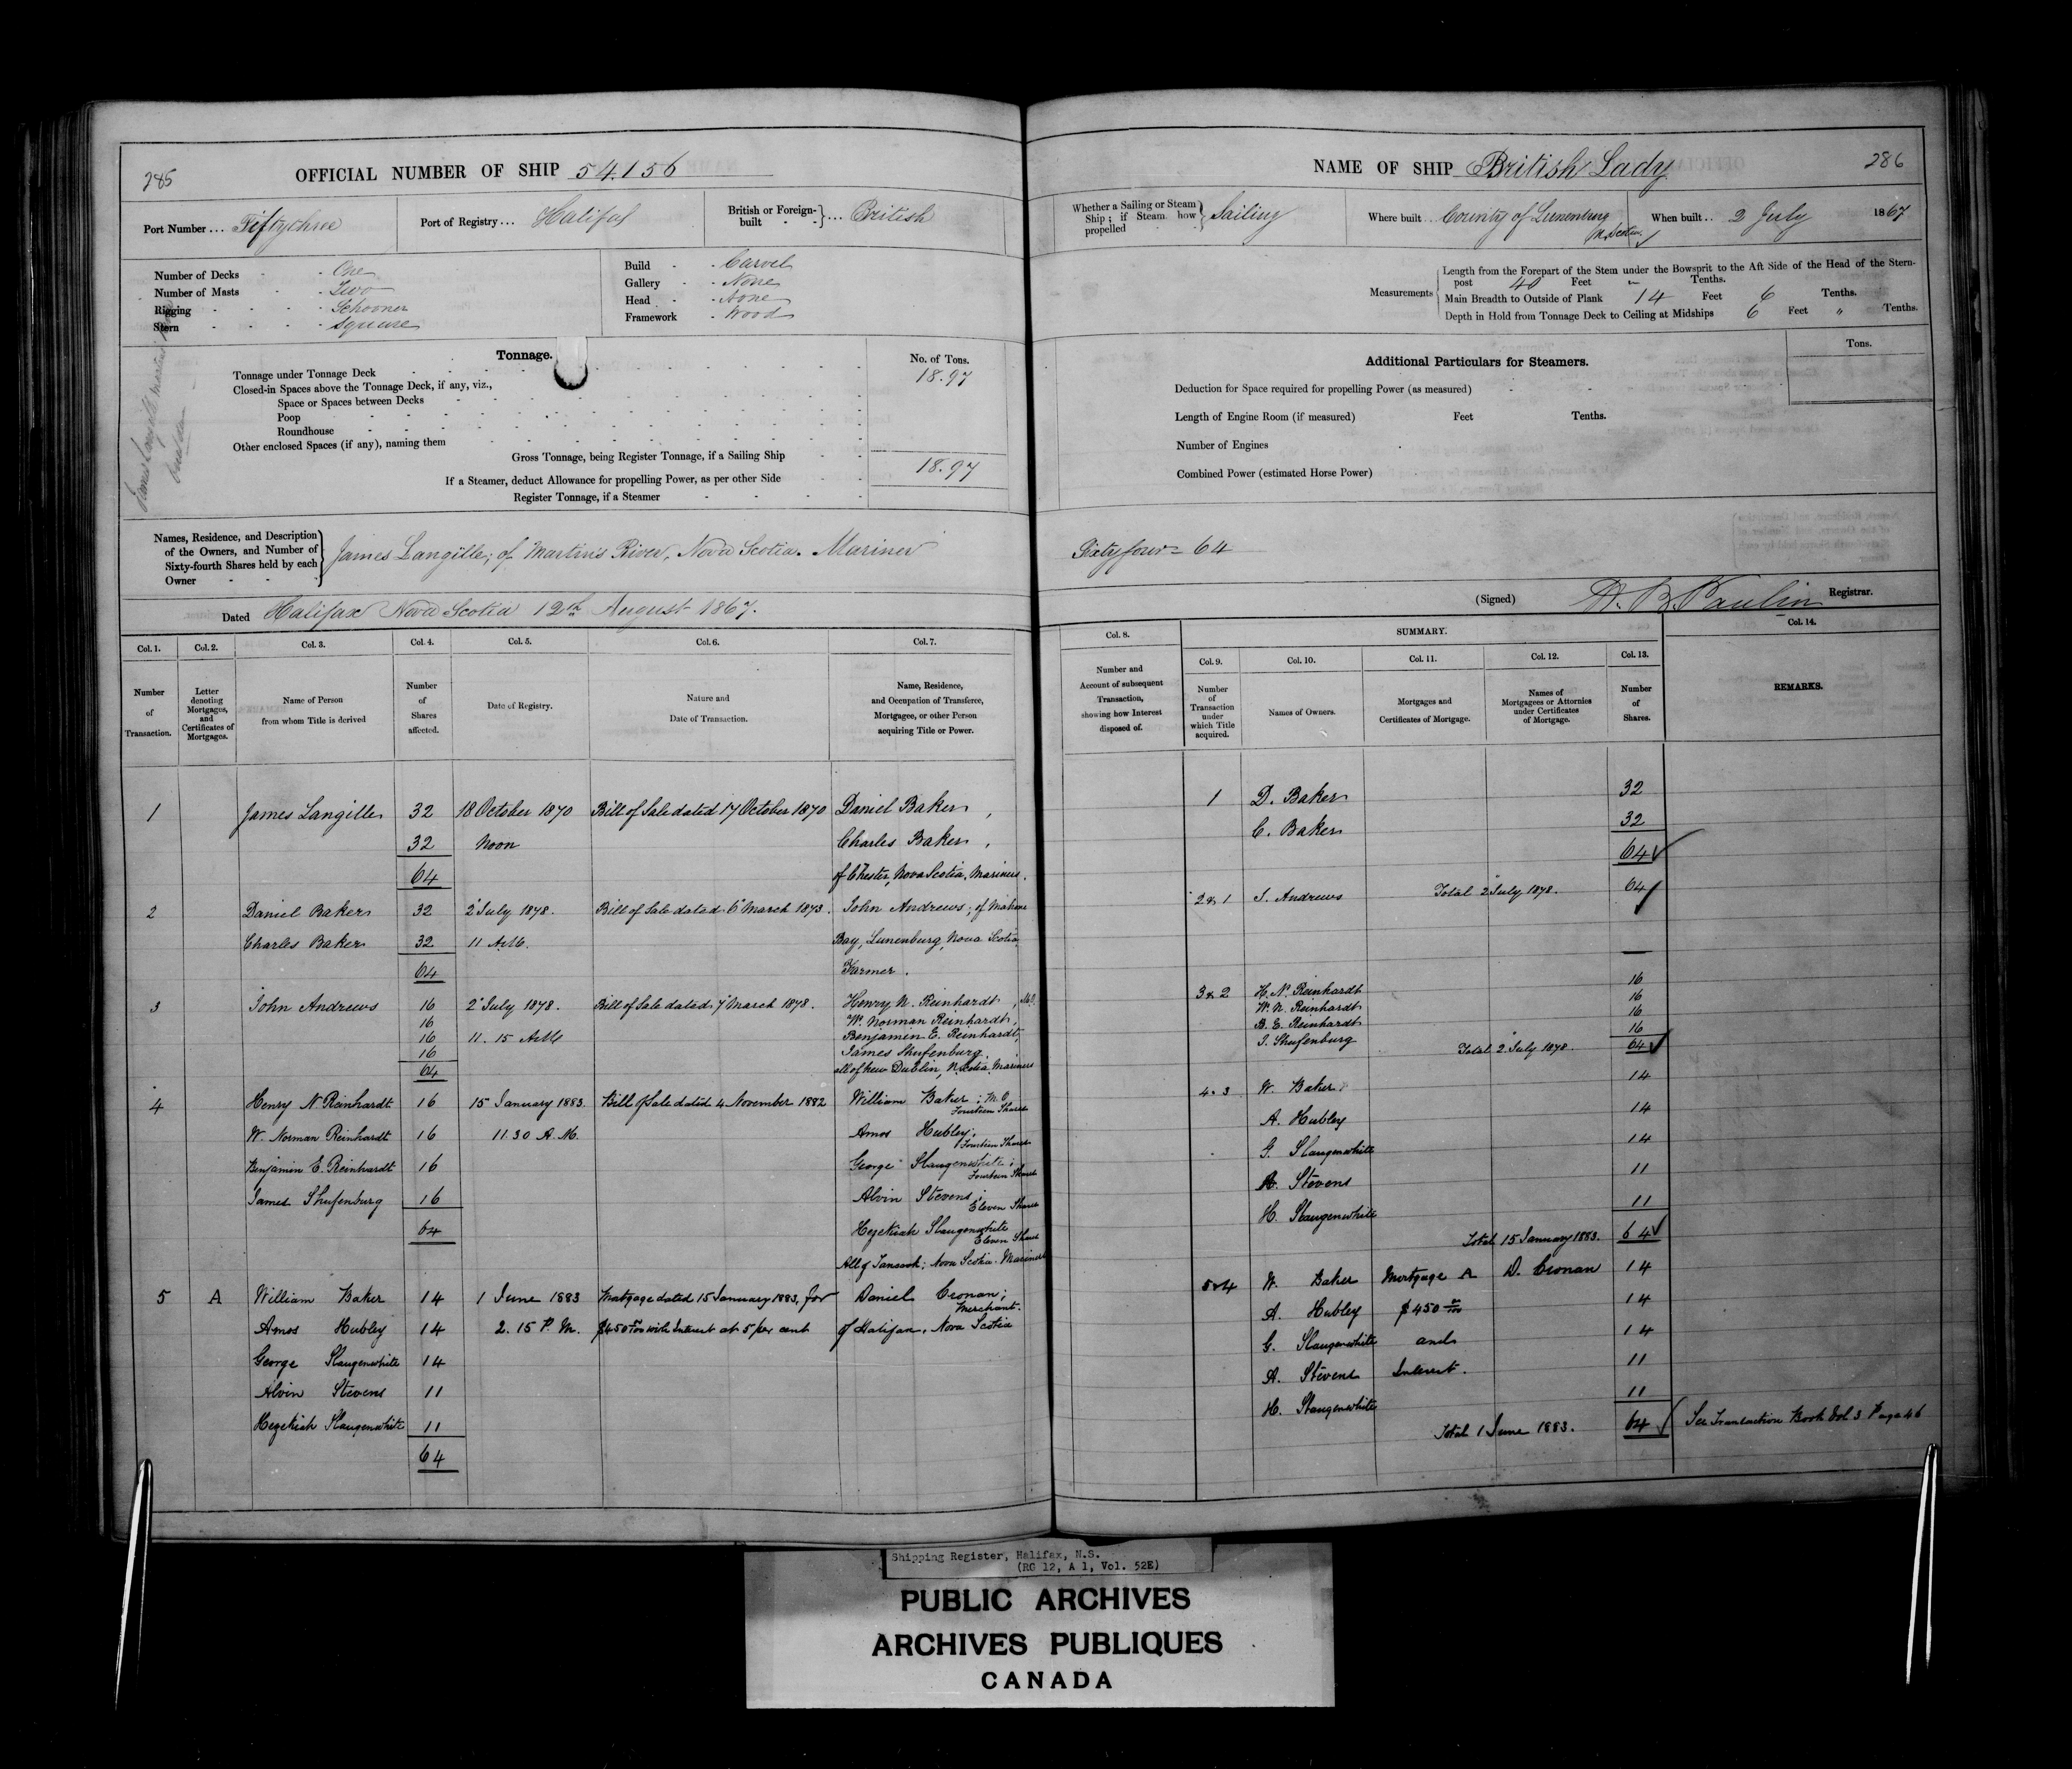 285
OFFICIAL NUMBER OF SHIP 54.156
Port Number ... Fiftythree
Port of Registry ... Halifax
British or Foreign-built } ... British
Number of Decks - - One
Number of Masts - - Two
Rigging - - - - Schooner
Stern - - - - Square
Build - - Carvel
Gallery - - None
Head - - None
Framework - Wood
Tonnage.
No. of Tons.
Tonnage under Tonnage Deck 18.97
Closed-in Spaces above the Tonnage Deck, if any, viz.,
Space or Spaces between Decks
Poop
Roundhouse
Other enclosed Spaces (if any), naming them
Gross Tonnage, being Register Tonnage, if a Sailing Ship 18.97
If a Steamer, deduct Allowance for propelling Power, as per other Side
Register Tonnage, if a Steamer
James Langille Martins River
Names, Residence, and Description
of the Owners, and Number of
Sixty-fourth Shares held by each
Owner
James Langille; of Martin's River, Nova Scotia. Mariner
Dated Halifax Nova Scotia 12th August 1867.
Col. 1. Col. 2. Col. 3. Col. 4. Col. 5. Col. 6. Col. 7.
Number of Transaction.
Letter denoting Mortgages, and Certificates of Mortgages.
Name of Person from whom Title is derived
Number of Shares affected.
Date of Registry.
Nature and Date of Transaction.
Name, Residence, and Occupation of Transferee, Mortgagee, or other Person acquiring Title or Power.
1 James Langille 32 18 October 1870 Bill of Sale dated 17 October 1870 Daniel Baker,
32 Noon Charles Baker,
64 of Chester, Nova Scotia, Mariners.
2 Daniel Baker 32 2 July 1878. Bill of Sale dated 6 March 1873. John Andrews; of Mahone
Charles Baker 32 11 A.M. Bay, Lunenburg, Nova Scotia
64 Farmer.
3 John Andrews 16 2 July 1878. Bill of Sale dated 7 March 1878. Henry N. Reinhardt, M.O.
16 Wm. Norman Reinhardt,
16 11.15 A.M. Benjamin E. Reinhardt,
16 James Shufenburg.
64 all of New Dublin, N. Scotia. Mariners
4 Henry N. Reinhardt 16 15 January 1883. Bill of Sale dated 4 November 1882 William Baker; M.O.
Fourteen Shares
W. Norman Reinhardt 16 11.30 A.M. Amos Hubley;
Fourteen Shares
Benjamin E. Reinhardt 16 George Slaugenwhite;
Fourteen Shares
James Shufenburg 16 Alvin Stevens;
Eleven Shares
64 Hezekiah Slaugenwhite
Eleven Shares
All of Tancook; Nova Scotia. Mariners
5 A William Baker 14 1 June 1883 Mortgage dated 15 January 1883, for Daniel Cronan;
Merchant.
Amos Hubley 14 2.15 P.M. $450 00/100 with Interest at 5 per cent of Halifax, Nova Scotia
George Slaugenwhite 14
Alvin Stevens 11
Hezekiah Slaugenwhite 11
64
NAME OF SHIP British Lady 286
Whether a Sailing or Steam Ship; if Steam how propelled } Sailing
Where built .. County of Lunenburg
N. Scotia.
When built .. 2 July 1867
Measurements
Length from the Forepart of the Stem under the Bowsprit to the Aft Side of the Head of the Stern-
post 40 Feet " Tenths.
Main Breadth to Outside of Plank 14 Feet 6 Tenths.
Depth in Hold from Tonnage Deck to Ceiling at Midships 6 Feet " Tenths.
Additional Particulars for Steamers.
Tons.
Deduction for Space required for propelling Power (as measured)
Length of Engine Room (if measured) Feet Tenths.
Number of Engines
Combined Power (estimated Horse Power)
Sixty four = 64
(Signed) Registrar.
Col. 8. SUMMARY. Col. 14.
Col. 9. Col. 10. Col. 11. Col. 12. Col. 13.
Number and Account of subsequent Transaction, showing how Interest disposed of.
Number of Transaction under which Title acquired.
Names of Owners.
Mortgages and Certificates of Mortgage.
Names of Mortgagees or Attornies under Certificates of Mortgage.
Number of Shares.
REMARKS.
1 D. Baker 32
C. Baker 32
64
2 & 1 J. Andrews Total 2 July 1878. 64
3 & 2 H. N. Reinhardt 16
W. N. Reinhardt 16
B. E. Reinhardt 16
J. Shufenburg 16
Total 2 July 1878. 64
4. 3 W. Baker 14
A. Hubley 14
G. Slaugenwhite 14
A. Stevens 11
H. Slaugenwhite 11
Total 15 January 1883. 64
5 & 4 W. Baker Mortgage A D. Cronan 14
A. Hubley $450 00/100 14
G. Slaugenwhite and 14
A. Stevens Interest. 11
H. Slaugenwhite 11
Total 1 June 1883. 64 See Transaction Book Vol 3 Page 46
Shipping Register, Halifax, N.S.
(RG 12, A 1, Vol. 52E)
PUBLIC ARCHIVES
ARCHIVES PUBLIQUES
CANADA